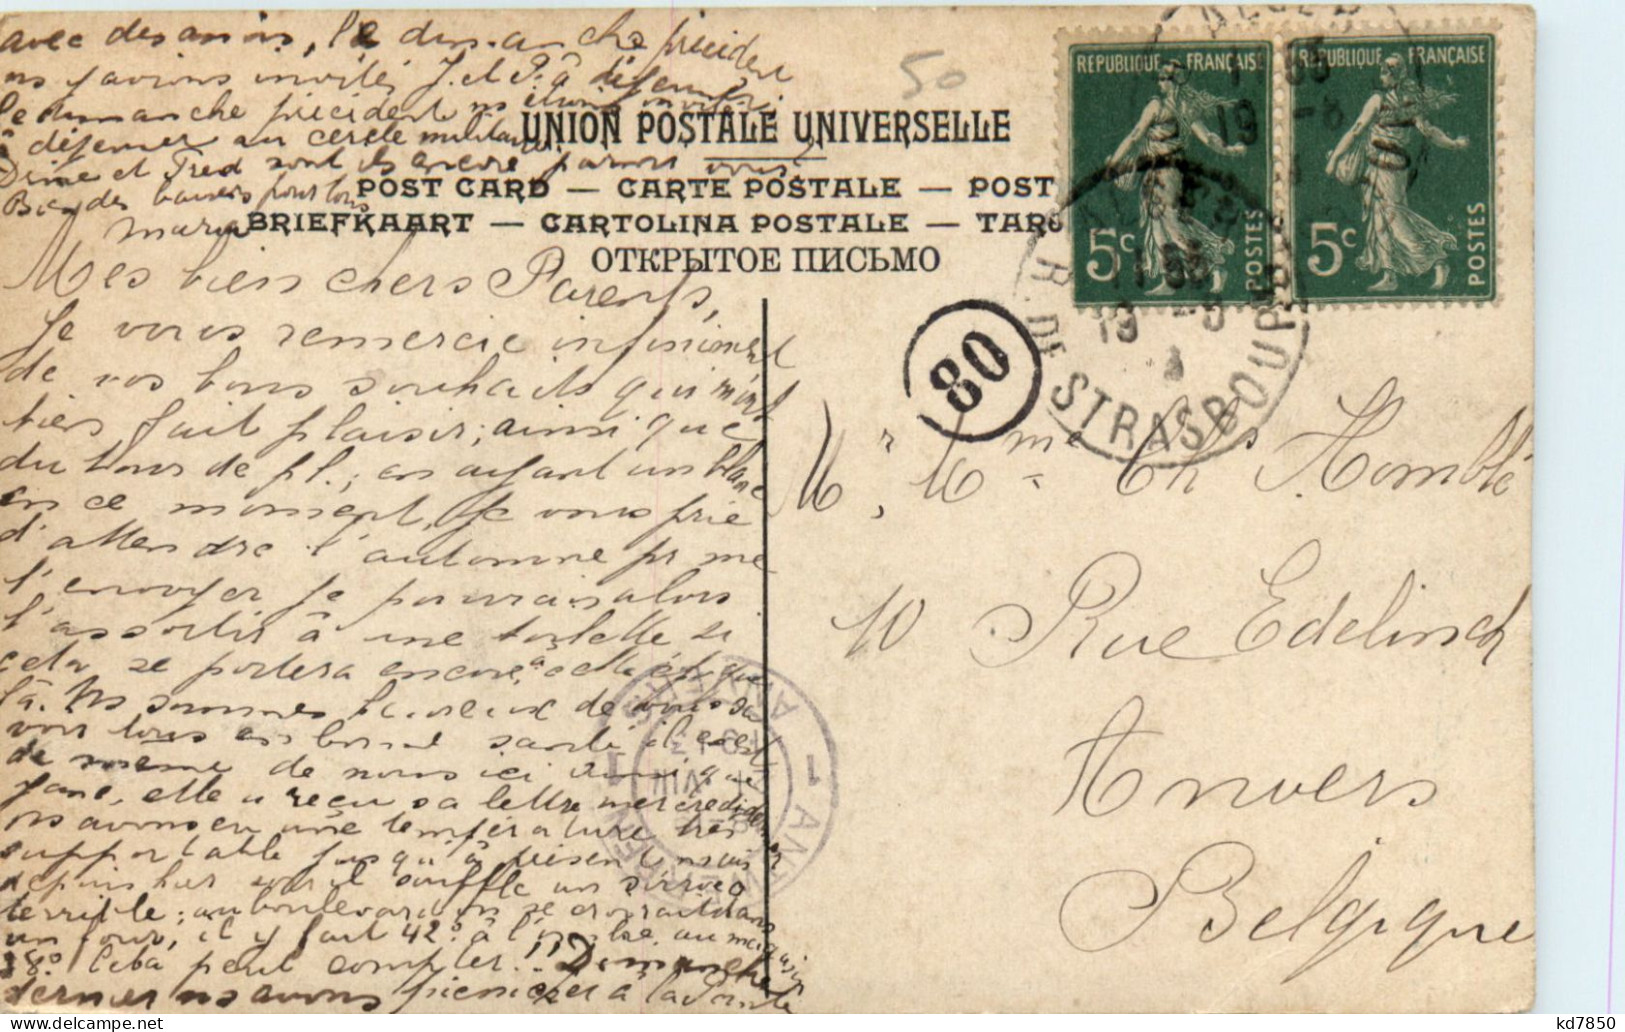 avec des amis, le dimanche précident
ns l'avions invités J. et P. à déjeuner
le dimanche précident ns étions invités
à déjeuner au cercle militaire
Dine et Fred sont ils encore parmi vous?
Bien des baisers pour tous
Maria
50
UNION POSTALE UNIVERSELLE
POST CARD — CARTE POSTALE — POST
BRIEFKAART — CARTOLINA POSTALE — TARG
ОТКРЫТОЕ ПИСЬМО
RÉPUBLIQUE FRANÇAISE
5c
POSTES
RÉPUBLIQUE FRANÇAISE
5c
POSTES
R. DE STRASBOURG
80
Mes bien chers Parents,
Je vous remercie infiniment
de vos bons souhaits qui m'ont
fait plaisir; ainsi que
du bons de pl.; en ayant un blanc
en ce moment, je vous prie
d'attendre l'automne pr me
l'envoyer je pourrais alors
l'assortir à une toilette si
cela se portera encore, à cette époque
là. Ns sommes heureux de vous sa
voir tous en bonne santé il en est
de même de nous ici ainsi que
Jane, elle a reçu sa lettre mercredi
ns avons eu une température très
supportable jusqu'à présent mais
depuis hier soir il souffle un sirroco
terrible; au boulevard on se croirait dans
un four, il y fait 42° à l'ombre. au magasin
38° Cela peut compter!! Dimanche
dernier ns avons picnicer à la Pointe
Mr, Mme Chs Homblé
10 Rue Edelinck
Anvers
Belgique
1 ANTWERPEN
1 ANVERS
VIII
kd7850